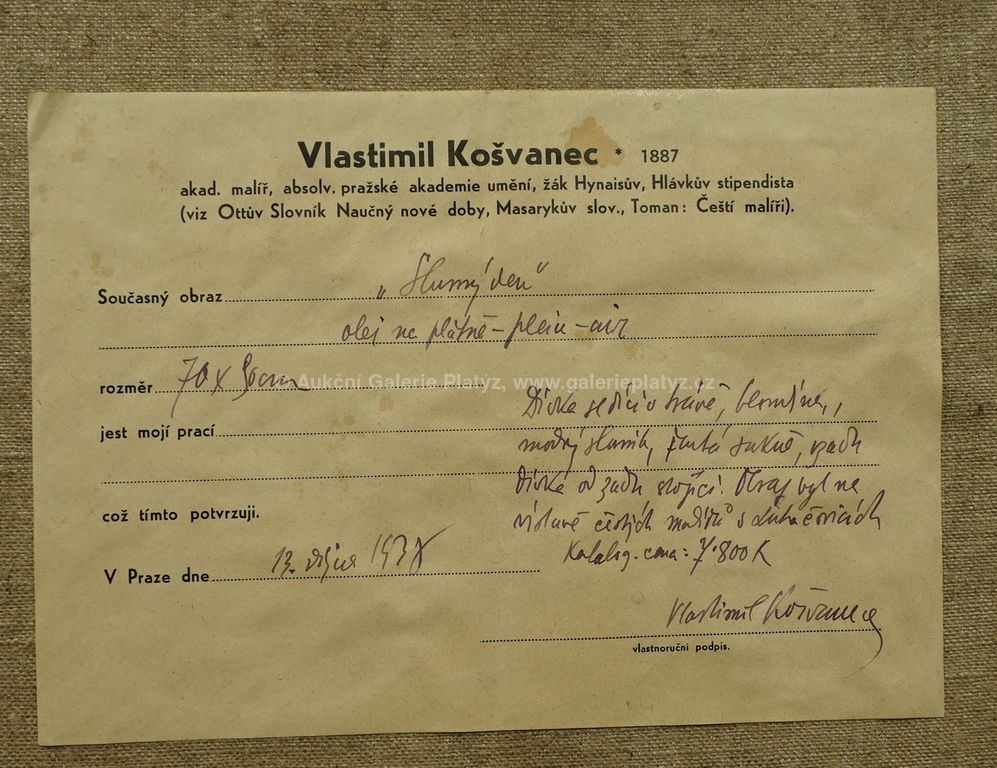 Vlastimil Košvanec * 1887
akad. malíř, absolv. pražské akademie umění, žák Hynaisův, Hlávkův stipendista
(viz Ottův Slovník Naučný nové doby, Masarykův slov., Toman: Čeští malíři).
Současný obraz „Slunný den"
olej na plátně - plein - air
rozměr 70 x
Aukční Galerie Platýz, www.galerieplatyz.cz
jest mojí prací
Dívka sedící v trávě, blondýna,
modrý slamák, žlutá sukně, vzadu
dívka od zadu stojící. Obraz byl na
výstavě českých malířů v Luhačovicích
Katalog. cena: 7.800 K
což tímto potvrzuji.
V Praze dne 13. října
Vlastimil Košvanec
vlastnoruční podpis.